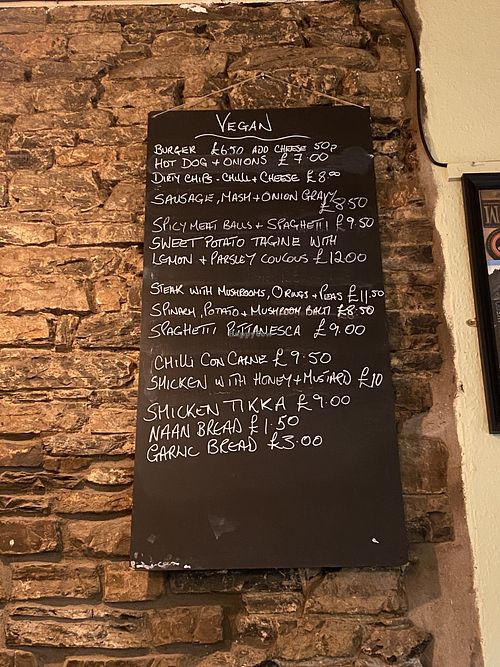 VEGAN
BURGER £6.50 ADD CHEESE 50p
HOT DOG + ONIONS £7.00
DIRTY CHIPS - CHILLI + CHEESE £8.00
SAUSAGE, MASH + ONION GRAVY
£8.50
SPICY MEAT BALLS + SPAGHETTI £9.50
SWEET POTATO TAGINE WITH
LEMON + PARSLEY COUCOUS £12.00
STEAK WITH MUSHROOMS, O RINGS + PEAS £11.50
SPINACH, POTATO + MUSHROOM BALTI £8.50
SPAGHETTI PUTTANESCA £9.00
CHILLI CON CARNE £9.50
SHICKEN WITH HONEY + MUSTARD £10
SHICKEN TIKKA £9.00
NAAN BREAD £1.50
GARLIC BREAD £3.00